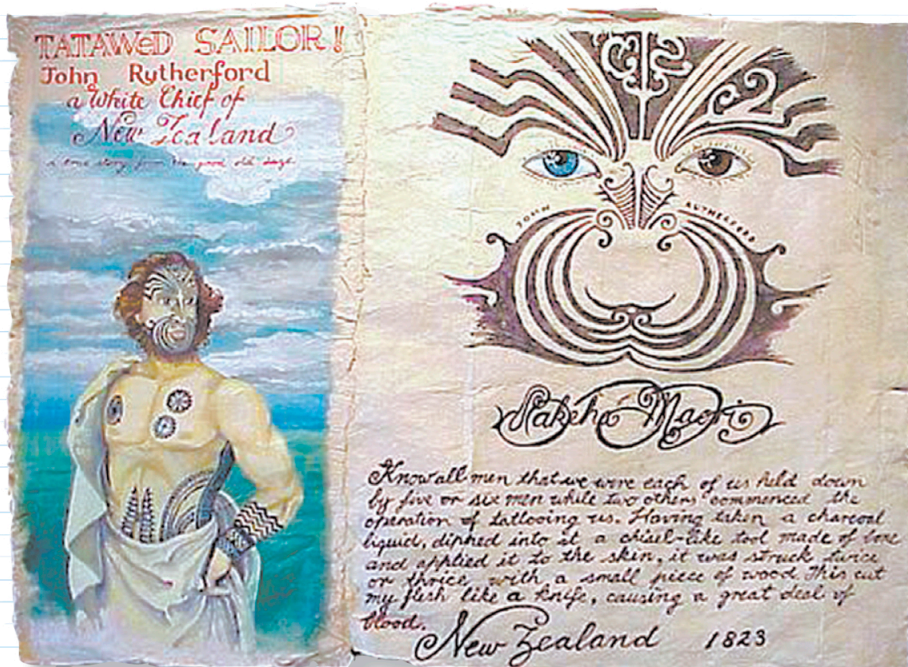 TATAWED SAILOR!
John Rutherford
a White Chief of
New Zealand
a story from the good old
JOHN RUTHERFORD
Pakeha Maori
Know all men that we were each of us held down
by five or six men while two others commenced the
operation of tattooing us. Having taken a charcoal
liquid, dipped into it a chisel-like tool made of bone
and applied it to the skin, it was struck twice
or thrice, with a small piece of wood This cut
my flesh like a knife, causing a great deal of
blood.
New Zealand 1823